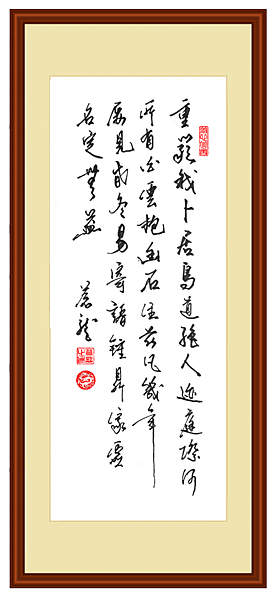 重巖我卜居鳥道絕人迹庭際何
所有白雲抱幽石住茲凡幾年
屢見春冬易寄語鐘鼎家虛
名定無益
蒼龍